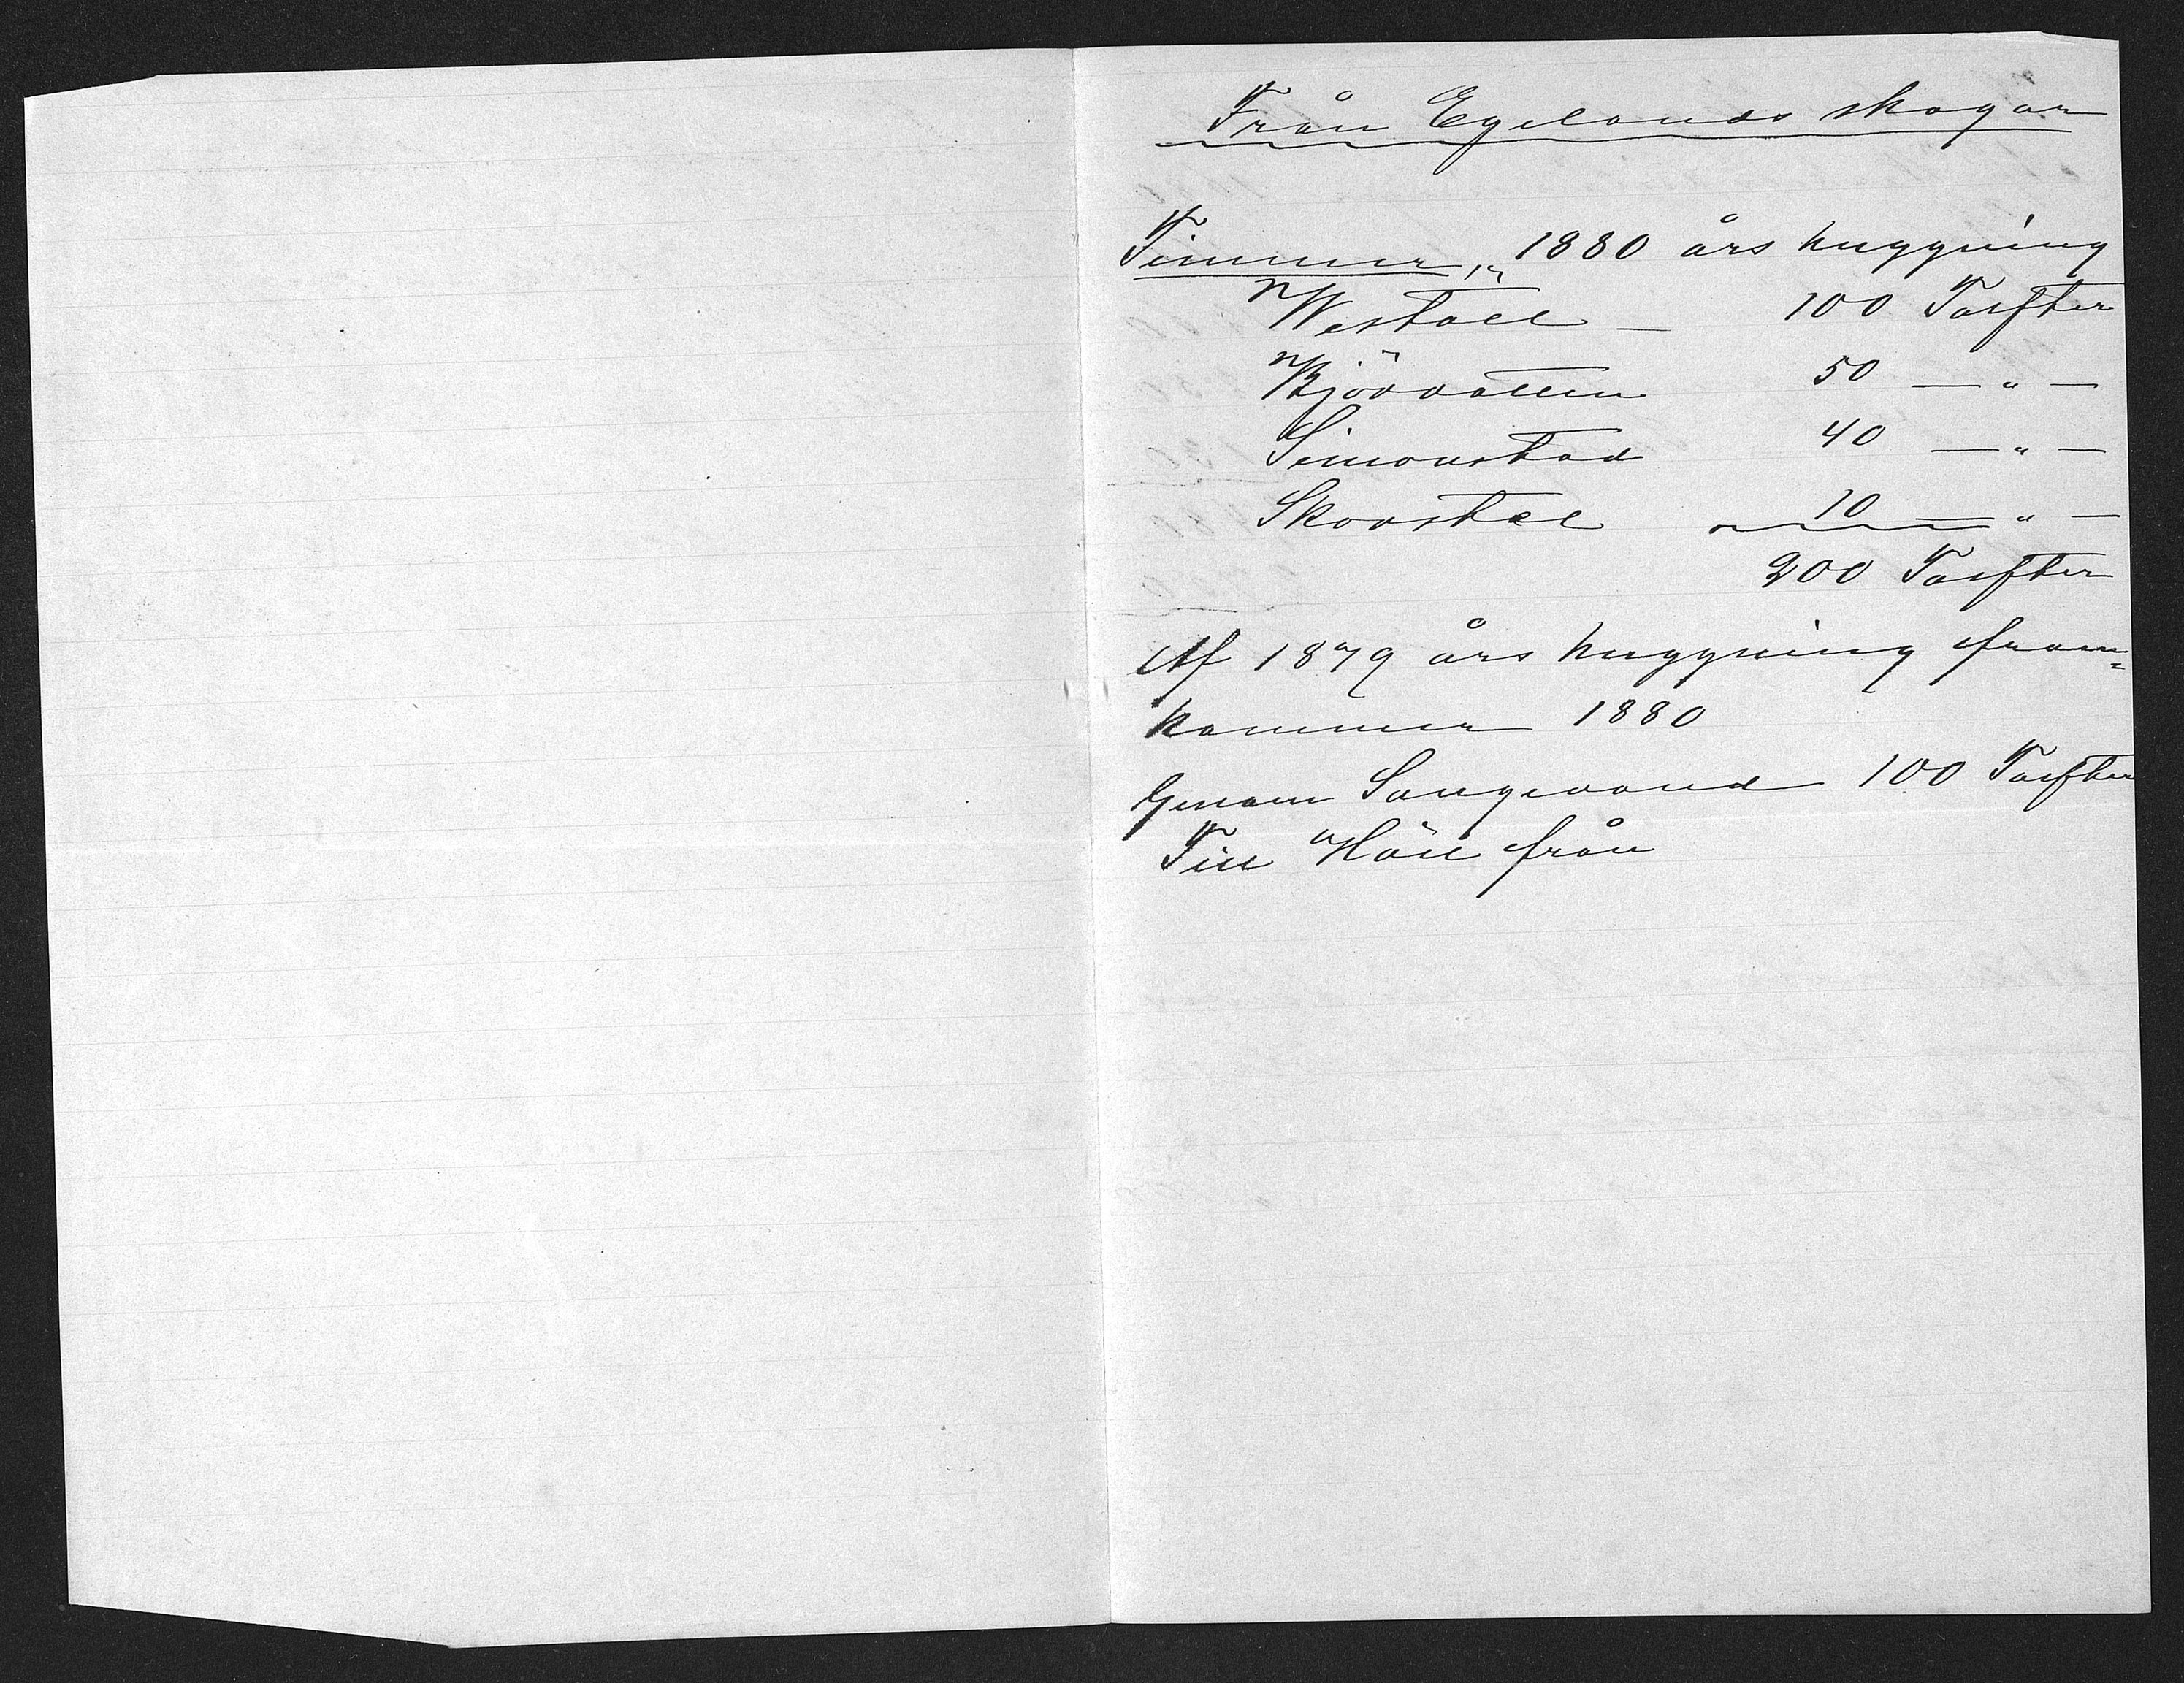 Från Egelands skogar
Timmer, 1880 års huggning
Westöel — 100 Tolfter
Björvatten 50 — " —
Simonstad 40 — " —
Skovstöl 10 — " —
200 Tolfter
Af 1879 års huggning fram=
kommer 1880
Genom Songevand 100 Tolfter
Till från